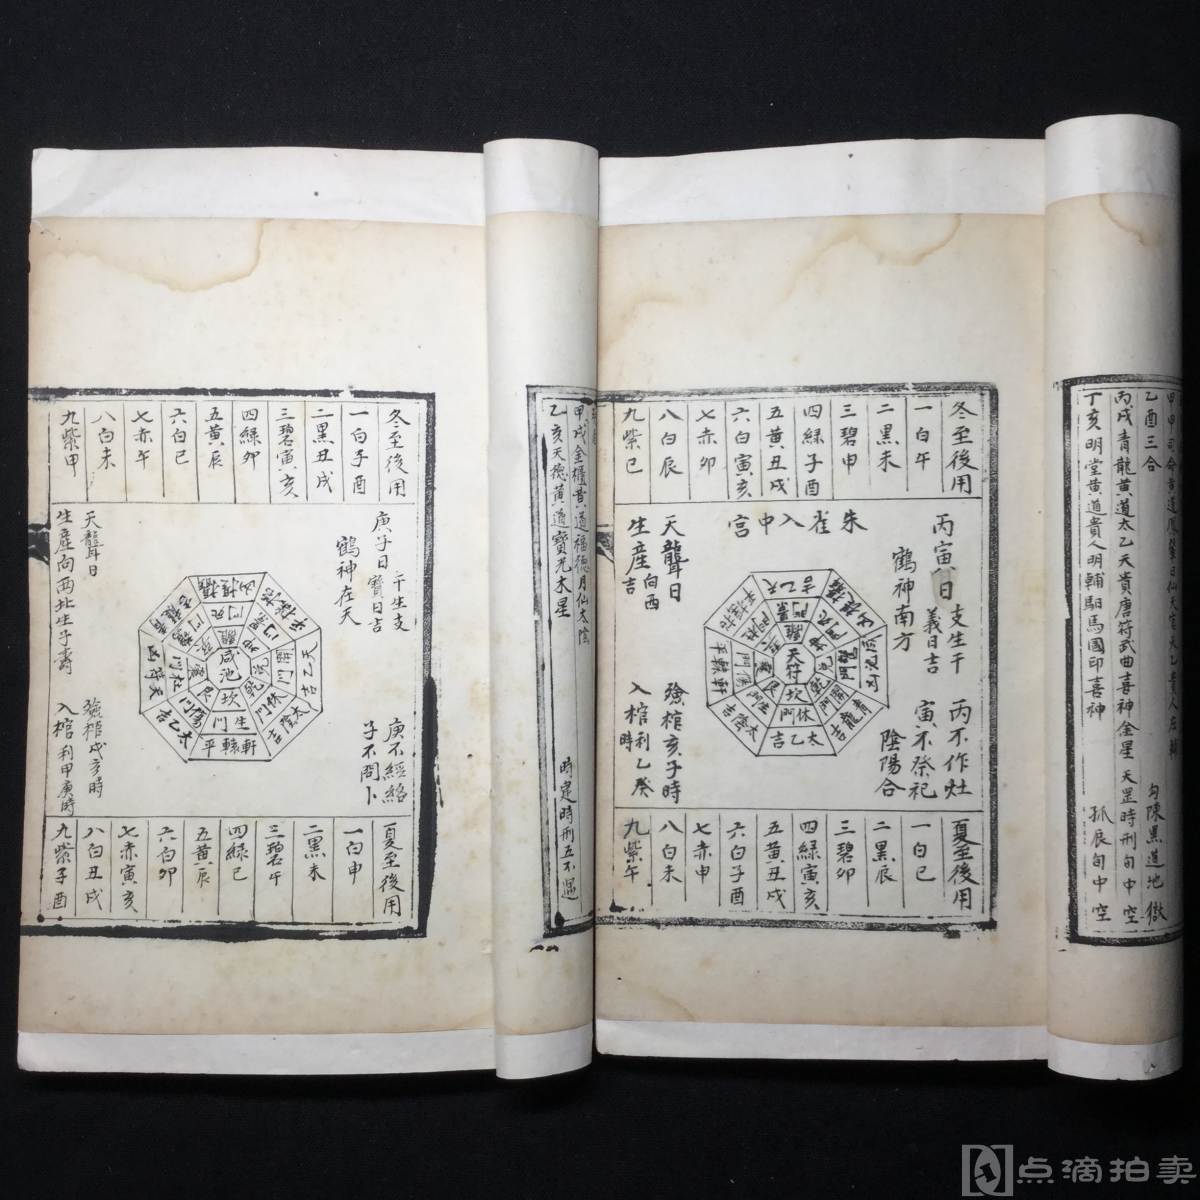 乙酉三合
丙戌青龍黃道太乙天貴唐符武曲喜神金星 天罡時刑旬中空
丁亥明堂黃道貴人明輔馹馬國印喜神
勾陳黑道地獄
孤辰旬中空
冬至後用
一白午
二黑未
三碧申
四綠子酉
五黃丑戌
六白寅亥
七赤卯
八白辰
九紫巳
朱雀入中宮
丙寅日
支生干
義日吉
鶴神南方
丙不作灶
寅不祭祀
陰陽合
天聾日
生產向西吉
強柞亥子時
入棺利乙癸時
天符
坎
乾
艮
休門
生門
景門
太乙吉
太陰吉
青龍吉
軒轅平
咸池凶
天乙吉
夏至後用
一白巳
二黑辰
三碧卯
四綠寅亥
五黃丑戌
六白子酉
七赤申
八白未
九紫午
甲戌金櫃黃道福德月仙太陰
乙亥天德黃道寶光木星
時定時刑五不遇
冬至後用
一白子酉
二黑丑戌
三碧寅亥
四綠卯
五黃辰
六白巳
七赤午
八白未
九紫申
庚子日
干生支
寶日吉
鶴神在天
庚不經絡
子不問卜
天聾日
生產向西北生子壽
強柞戌亥時
入棺利甲庚時
咸池
坎
乾
艮
生門
休門
開門
杜門
死門
軒轅平
太陰吉
天乙吉
太乙吉
天符凶
夏至後用
一白申
二黑未
三碧午
四綠巳
五黃辰
六白卯
七赤寅亥
八白丑戌
九紫子酉
点滴拍卖